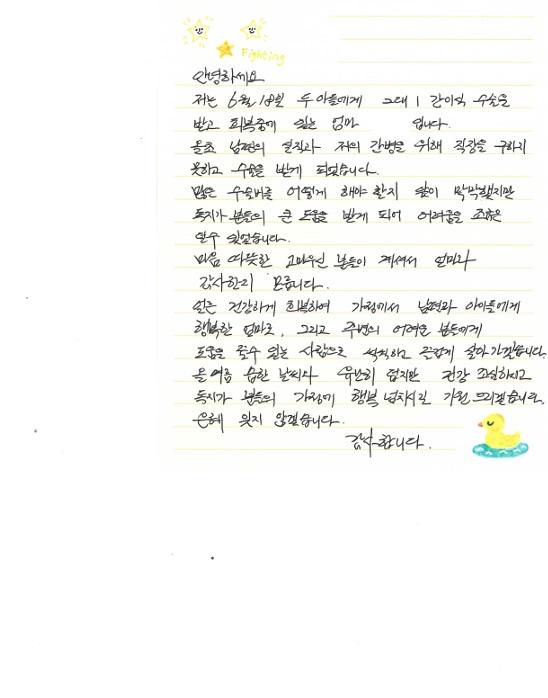 Fighting
안녕하세요
저는 6월 18일 두 아들에게 간이식 수술을
받고 회복중에 있는 엄마 입니다.
올초 남편의 실직과 저의 간병을 위해 직장을 구하지
못하고 수술을 받게 되었습니다.
많은 수술비를 어떻게 해야 할지 앞이 막막했지만
독지가 분들의 큰 도움을 받게 되어 어려움을 조금은
덜수 있었습니다.
마음 따뜻한 고마우신 분들이 계셔서 얼마나
감사한지 모릅니다.
얼른 건강하게 회복하여 가정에서 남편과 아이들에게
행복한 엄마로, 그리고 주변의 어려운 분들에게
도움을 줄수 있는 사람으로 씩씩하고 즐겁게 살아가겠습니다.
올 여름 습한 날씨와 유난히 덥지만 건강 조심하시고
독지가 분들의 가정에 행복 넘치시길 기원 드리겠습니다.
은혜 잊지 않겠습니다.
감사합니다.